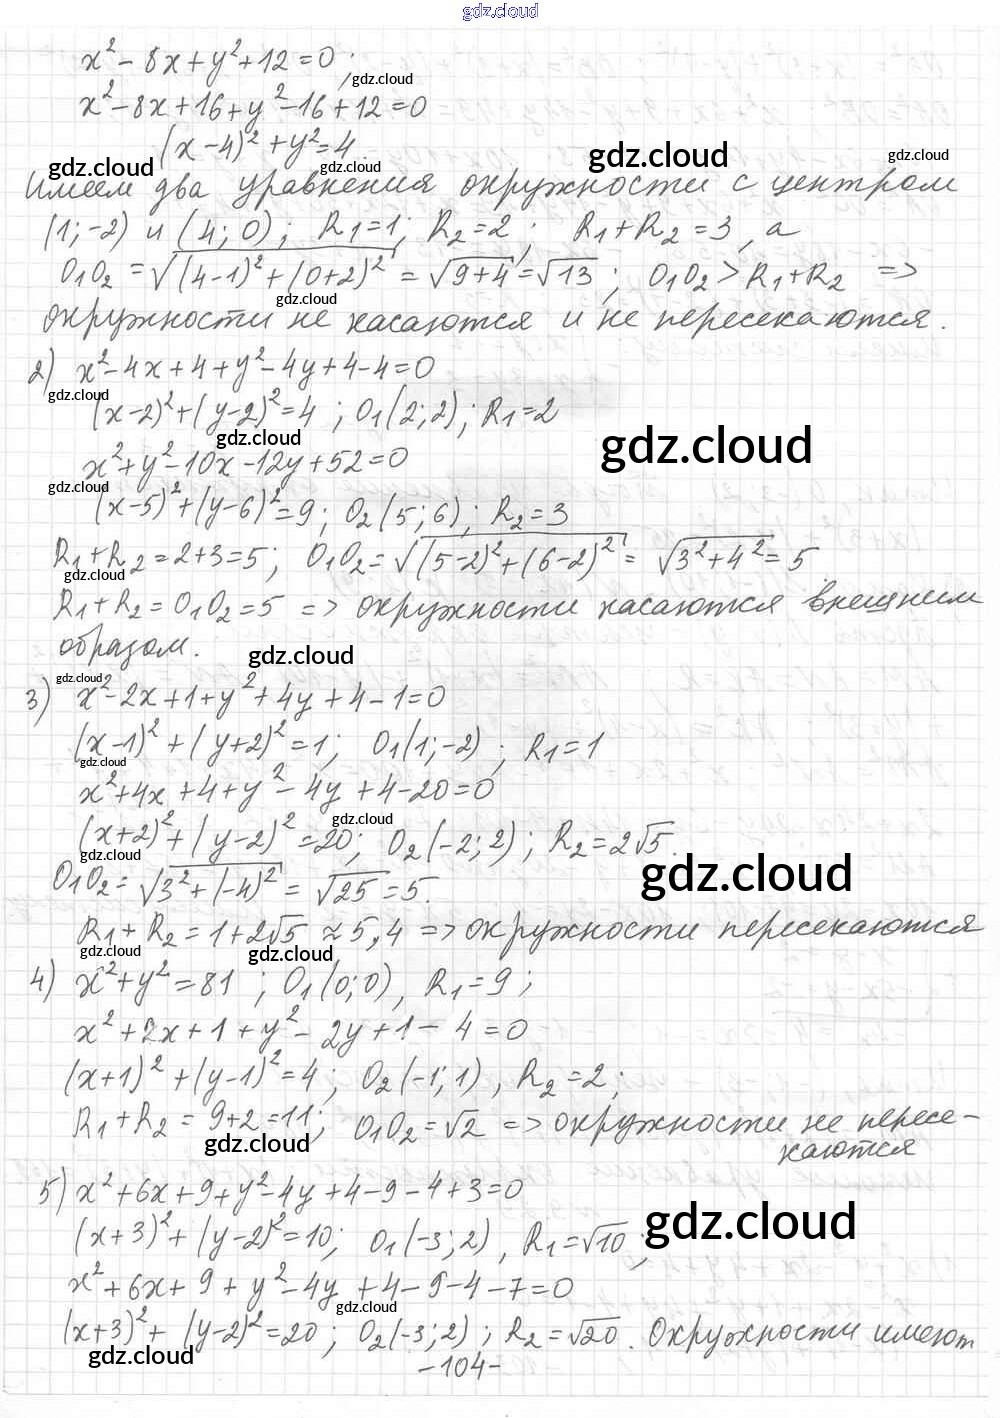 gdz.cloud
x² - 8x + y² + 12 = 0;
gdz.cloud
x² - 8x + 16 + y² - 16 + 12 = 0
(x-4)² + y² = 4.
gdz.cloud gdz.cloud gdz.cloud gdz.cloud
Имеем два уравнения окружности с центром
(1; -2) и (4; 0); R₁ = 1; R₂ = 2; R₁ + R₂ = 3, а
O₁O₂ = √((4-1)² + (0+2)²) = √(9+4) = √13; O₁O₂ > R₁ + R₂ =>
gdz.cloud
окружности не касаются и не пересекаются.
2) x² - 4x + 4 + y² - 4y + 4 - 4 = 0
gdz.cloud
(x-2)² + (y-2)² = 4; O₁(2; 2); R₁ = 2
gdz.cloud gdz.cloud
x² + y² - 10x - 12y + 52 = 0
gdz.cloud
(x-5)² + (y-6)² = 9; O₂(5; 6); R₂ = 3
R₁ + R₂ = 2 + 3 = 5; O₁O₂ = √((5-2)² + (6-2)²) = √(3² + 4²) = 5
gdz.cloud
R₁ + R₂ = O₁O₂ = 5 => окружности касаются внешним
образом.
gdz.cloud
gdz.cloud
3) x² - 2x + 1 + y² + 4y + 4 - 1 = 0
(x-1)² + (y+2)² = 1; O₁(1; -2); R₁ = 1
gdz.cloud
x² + 4x + 4 + y² - 4y + 4 - 20 = 0
gdz.cloud
(x+2)² + (y-2)² = 20; O₂(-2; 2); R₂ = 2√5.
gdz.cloud gdz.cloud
O₁O₂ = √(3² + (-4)²) = √25 = 5.
R₁ + R₂ = 1 + 2√5 ≈ 5,4 => окружности пересекаются
gdz.cloud gdz.cloud
4) x² + y² = 81; O₁(0; 0), R₁ = 9;
x² + 2x + 1 + y² - 2y + 1 - 4 = 0
(x+1)² + (y-1)² = 4; O₂(-1; 1), R₂ = 2;
R₁ + R₂ = 9 + 2 = 11; O₁O₂ = √2 => окружности не пересе-
gdz.cloud
каются
5) x² + 6x + 9 + y² - 4y + 4 - 9 - 4 + 3 = 0
gdz.cloud
(x+3)² + (y-2)² = 10; O₁(-3; 2), R₁ = √10;
x² + 6x + 9 + y² - 4y + 4 - 9 - 4 - 7 = 0
gdz.cloud
(x+3)² + (y-2)² = 20; O₂(-3; 2); R₂ = √20. Окружности имеют
gdz.cloud
-104-